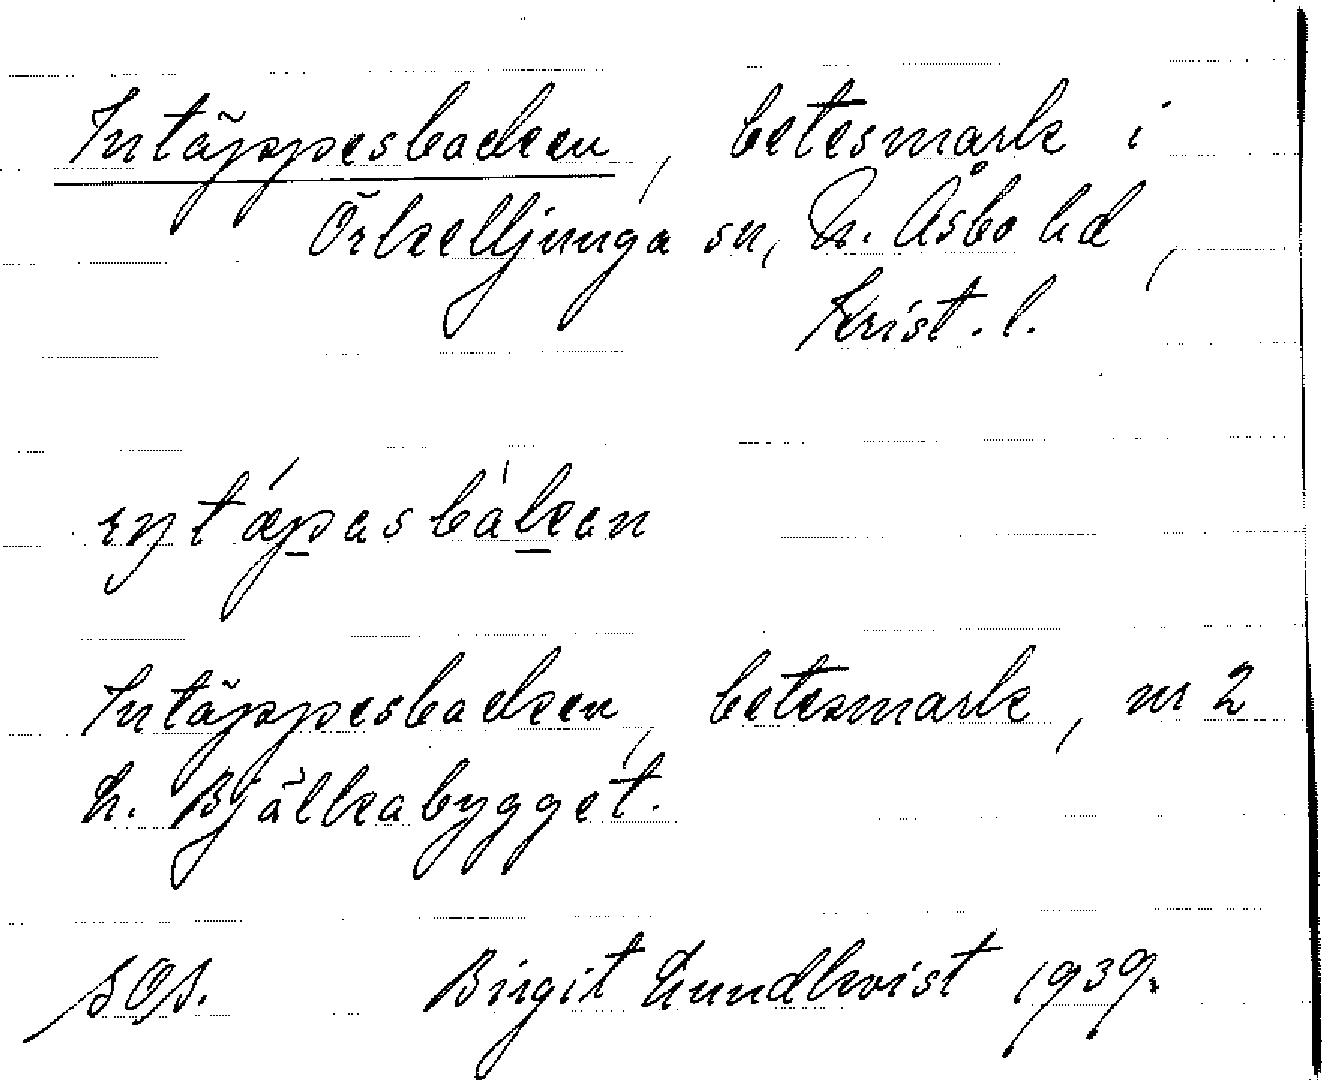 Intäppesbacken, betesmark i
Örkelljunga sn, N. Åsbo hd,
Krist. l.
Intäppesbacken, betesmark, nr 2
L. Bjälkabygget.
SOS. Birgit Lundkvist 1939.